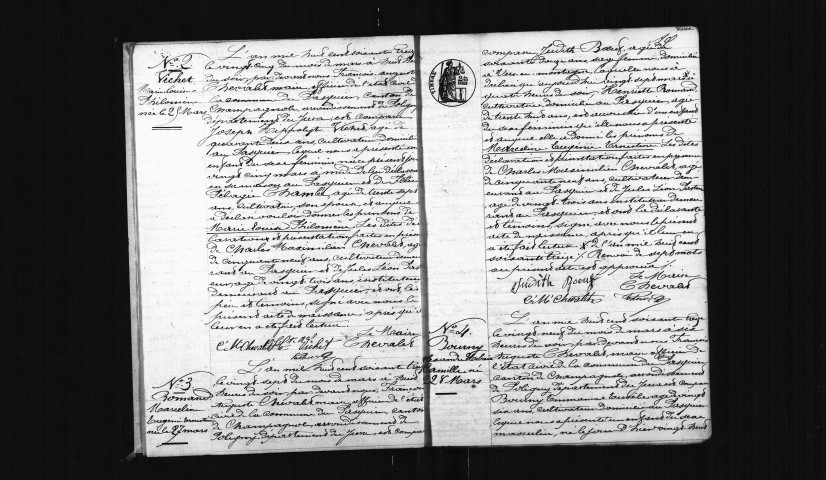 N° 2
Vichet
Marie Louise
Philomene
née le 25 Mars
L'an mil huit cent soixante treize
le vingt cinq du mois de mars à huit heures
du soir, par devant nous François auguste
Chevalet maire, officier de l'état civil de
la commune du Pasquier, canton de
Champagnole, arrondissement de Poligny
département du Jura, est comparu
Joseph Hippolyte Vichet, agé de
quarante ans, cultivateur domicilié
au Pasquier, lequel nous a présenté un
enfant du sexe féminin, née ce présent jour
vingt cinq mars à midi, de lui déclarant
en sa maison au Pasquier et de
Pélagie agée de trente sept
ans, cultivatrice, son épouse, et auquel il
a déclaré vouloir donner les prénoms de
Marie Louise Philomene. Les dites dé-
clarations et présentation faites en présence
de Charles Maximilien Chevalet, agé
de cinquante neuf ans, cultivateur demeu
rant au Pasquier et de Jules Léon
agé de vingt trois ans instituteur
demeurant au Pasquier, et ont les
père et témoins, signé avec nous le
présent acte de naissance, après qu'il
leur en a été fait lecture
Le Maire
C. M. Chevalet Vichet Chevalet
N° 3
Romand
Marcelin
Eugénie Ernestine
née le 27 mars
L'an mil huit cent soixante treize
le vingt sept du mois de mars à huit
heures du soir, par devant nous François
auguste Chevalet maire, officier de l'état
civil de la commune du Pasquier canton
de Champagnole, arrondissement de
Poligny, département du Jura, est compa
comparue Judith Bœuf, agée de
soixante douze ans, sage femme, domiciliée
à Vers en montagne laquelle nous a
déclaré que
heure du soir, Henriette Romand
cultivatrice domiciliée au Pasquier, agée
de trente huit ans, est accouchée d'un enfant
du sexe féminin qu'elle nous a présenté
et auquel elle a donné les prénoms de
Marcelin Eugénie Ernestine. Les dites
déclaration et présentation faites en présence
de Charles Maximilien Chevalet, agé
de cinquante neuf ans, cultivateur demeu
rant au Pasquier et de Jules Léon
agé de vingt trois ans instituteur demeu
rant au Pasquier, et ont la déclarante
et témoins, signé avec nous le présent
acte de naissance, après qu'il leur en
a été fait lecture X 2 L'an mil huit cent
soixante treize / Renvoi de sept mots
au présent acte est approuvé /
Le Maire
Judith Boeuf Chevalet
C. M. Chevalet
N° 4.
Bourny
Camille né
28 Mars
L'an mil huit cent soixante treize
le vingt neuf du mois de mars à six
heures du soir, par devant nous François
auguste Chevalet, maire officier de
l'état civil de la commune du Pasquier
canton de Champagnole, arrondissement
de Poligny département du Jura est comparu
Bourny Emmanuel agé de vingt
six ans, cultivateur domicilié au Pasquier
lequel nous a présenté un enfant du sexe
masculin, né le jour d'hier vingt huit